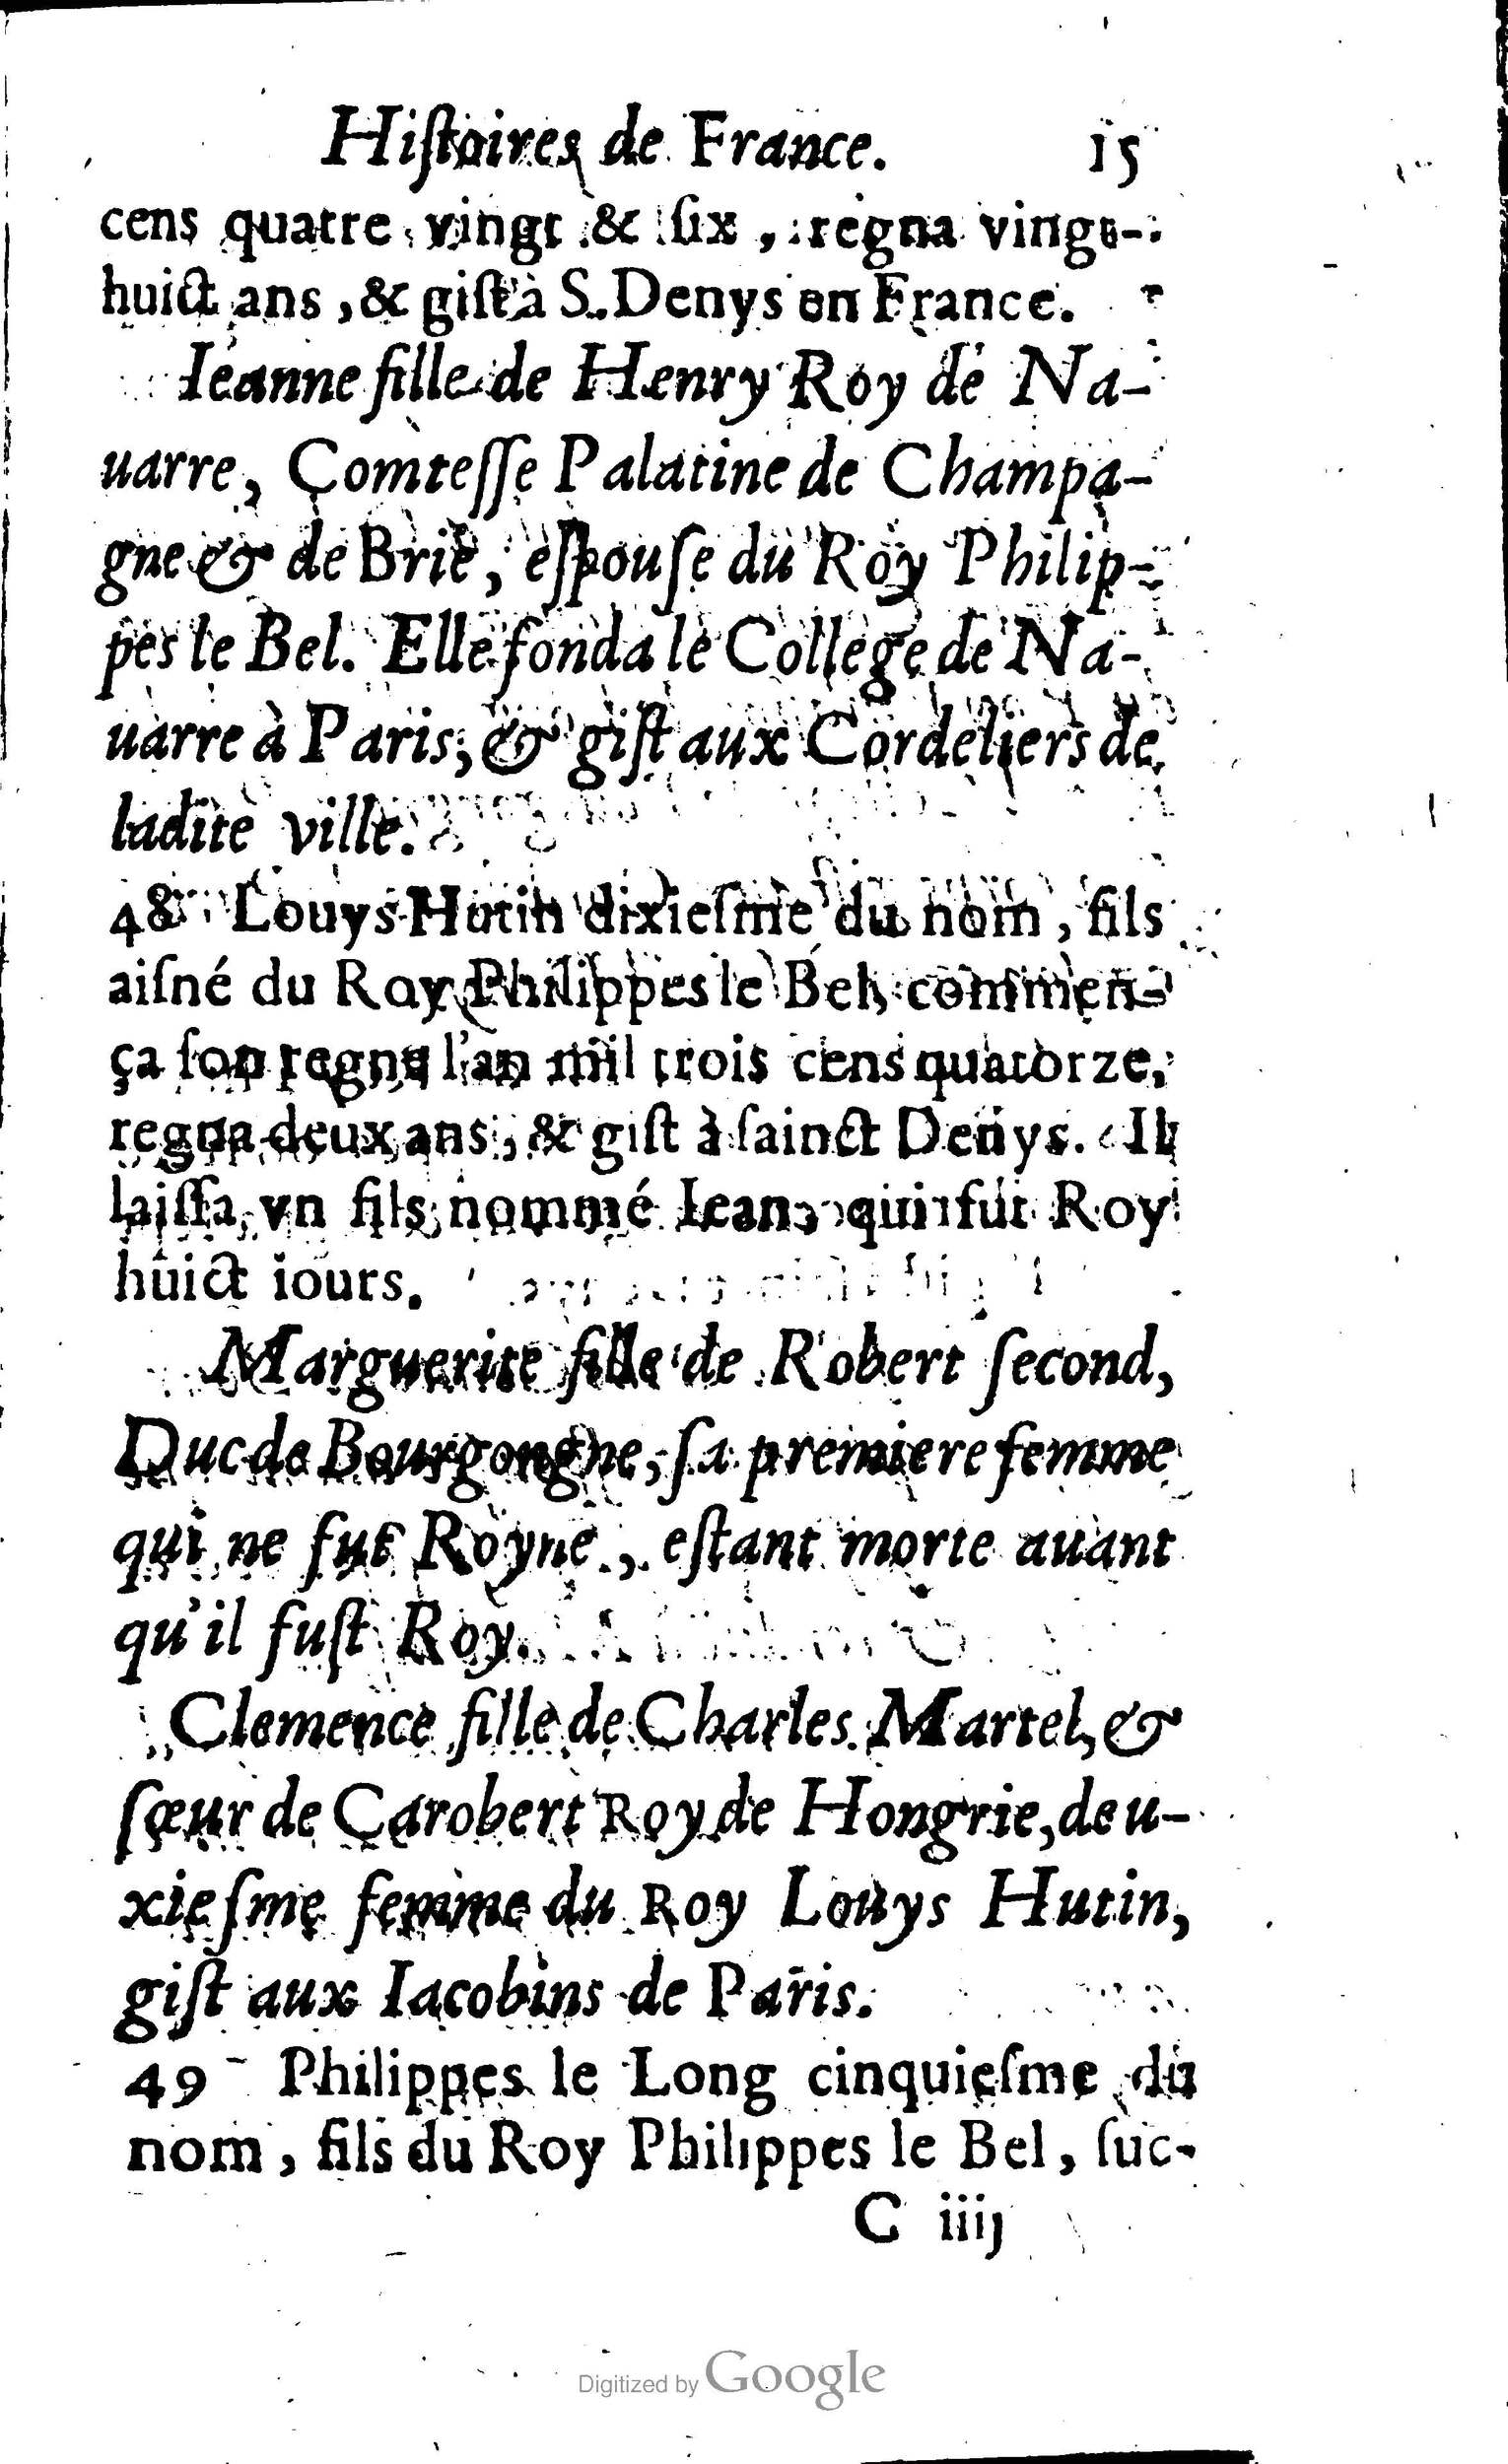 Hiſtoires de France. 15
cens quatre vingt & ſix, regna vingt-
huict ans, & giſt à S. Denys en France.
Ieanne fille de Henry Roy de Na-
uarre, Comteſſe Palatine de Champa-
gne & de Brie, eſpouſe du Roy Philip-
pes le Bel. Elle fonda le College de Na-
uarre à Paris, & giſt aux Cordeliers de
ladite ville.
48 Louys Hutin dixieſme du nom, fils
aiſné du Roy Philippes le Bel, commen-
ça ſon regne l'an mil trois cens quatorze,
regna deux ans, & giſt à ſainct Denys. Il
laiſſa vn fils nommé Iean, qui fut Roy
huict iours.
Marguerite fille de Robert ſecond,
Duc de Bourgongne, ſa premiere femme
qui ne fut Royne, eſtant morte auant
qu'il fuſt Roy.
Clemence fille de Charles Martel, &
ſœur de Carobert Roy de Hongrie, deu-
xieſme femme du Roy Louys Hutin,
giſt aux Iacobins de Paris.
49 Philippes le Long cinquieſme du
nom, fils du Roy Philippes le Bel, ſuc-
C iiij
Digitized by Google